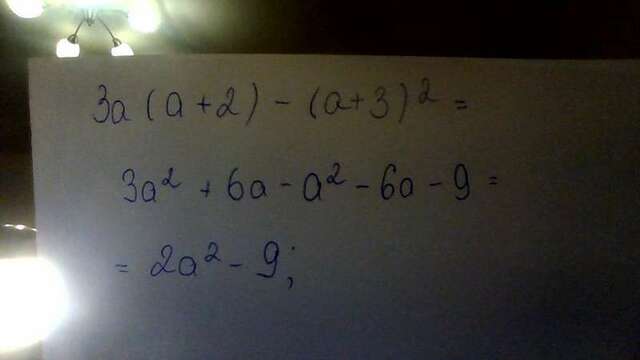 3a(a+2)-(a+3)²=
3a²+6a-a²-6a-9=
=2a²-9;